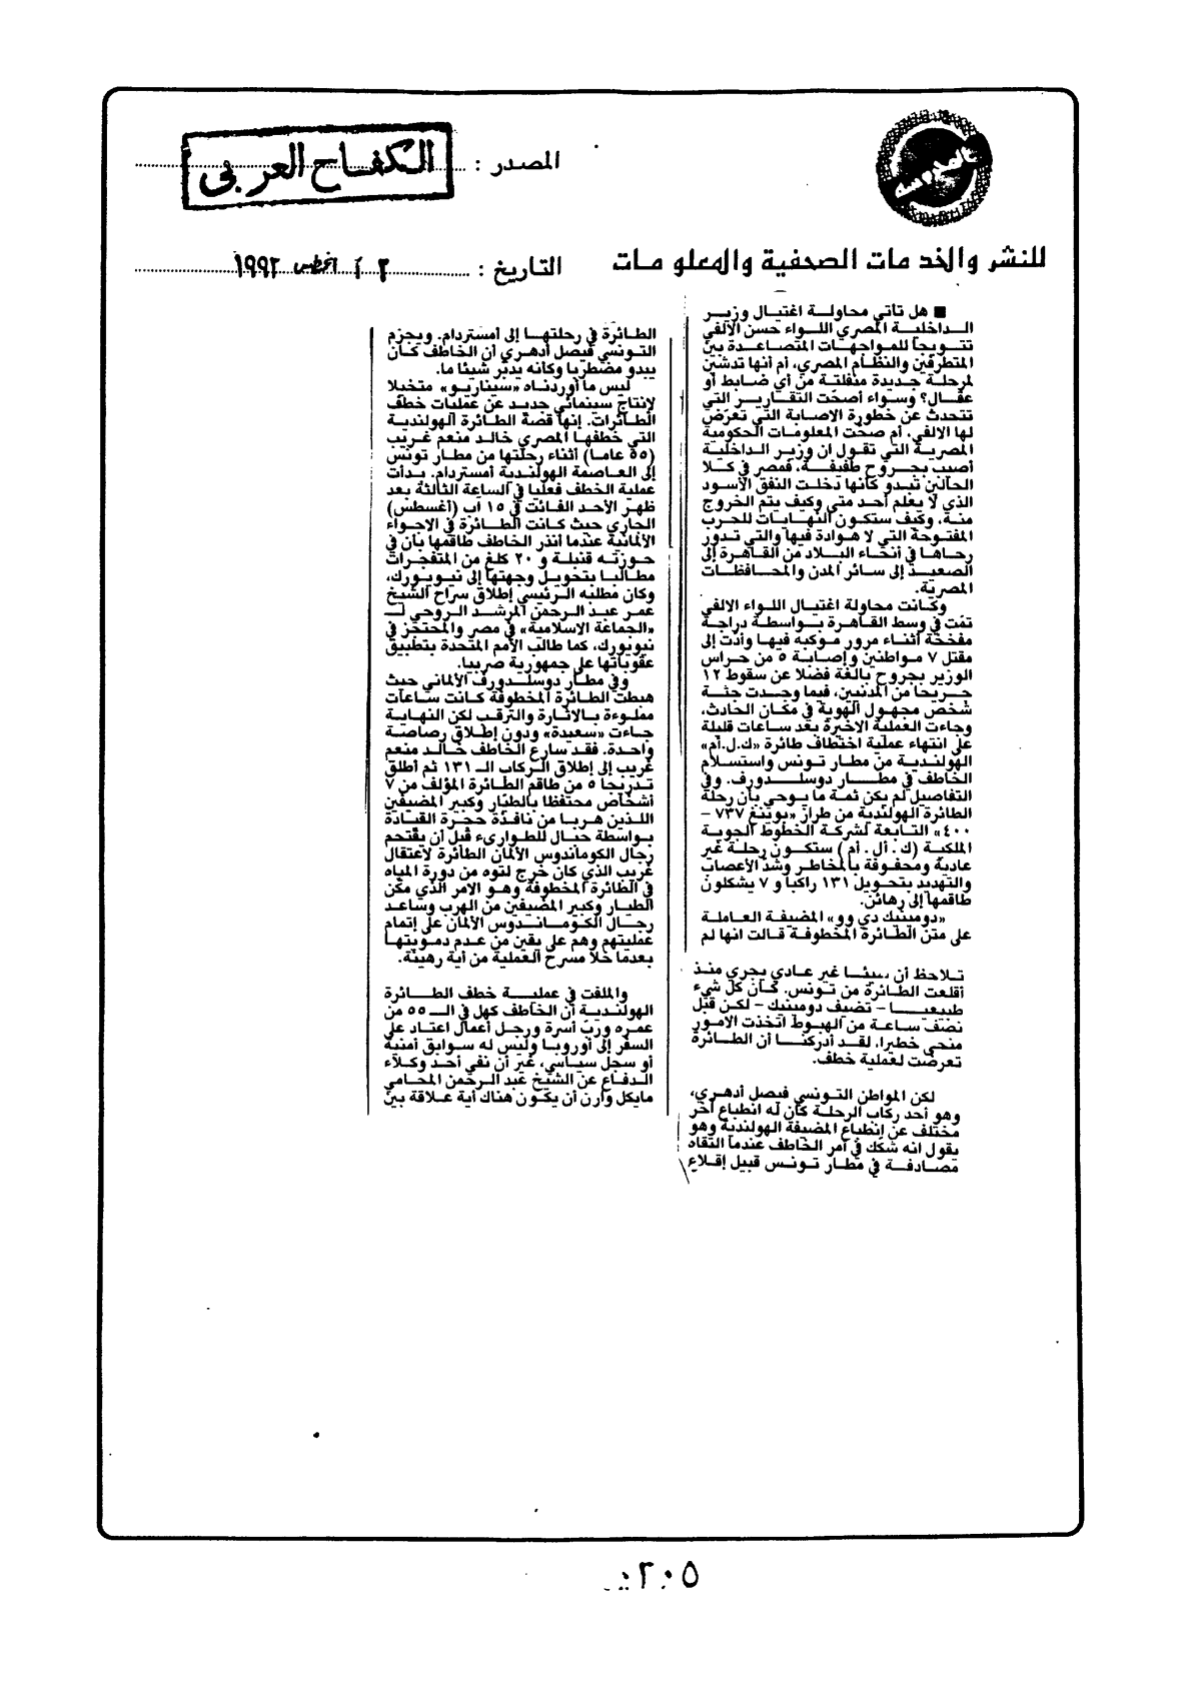 المصدر : الكفاح العربي
للنشر والخدمات الصحفية والمعلومات
التاريخ : أغسطس ١٩٩٣
■ هل تأتي محاولة اغتيال وزير
الداخلية المصري اللواء حسن الالفي
تتويجا للمواجهات المتصاعدة بين
المتطرفين والنظام المصري، أم أنها تدشين
لمرحلة جديدة منفلتة من أي ضابط أو
عقال؟ وسواء أصحّت التقارير التي
تتحدث عن خطورة الاصابة التي تعرّض
لها الالفي، أم صحّت المعلومات الحكومية
المصرية التي تقول ان وزير الداخلية
أصيب بجروح طفيفة، فمصر في كلا
الحالين تبدو كأنها دخلت النفق الأسود
الذي لا يعلم أحد متى وكيف يتم الخروج
منه، وكيف ستكون النهايات للحرب
المفتوحة التي لا هوادة فيها والتي تدور
رحاها في أنحاء البلاد من القاهرة إلى
الصعيد إلى سائر المدن والمحافظات
المصرية.
وكانت محاولة اغتيال اللواء الالفي
تمّت في وسط القاهرة بواسطة دراجة
مفخخة أثناء مرور موكبه فيها وأدت إلى
مقتل ٧ مواطنين وإصابة ٥ من حراس
الوزير بجروح بالغة فضلا عن سقوط ١٢
جريحا من المدنيين، فيما وجدت جثة
شخص مجهول الهوية في مكان الحادث،
وجاءت العملية الاخيرة بعد ساعات قليلة
على انتهاء عملية اختطاف طائرة «ك.ل.أم»
الهولندية من مطار تونس واستسلام
الخاطف في مطار دوسلدورف. وفي
التفاصيل لم يكن ثمة ما يوحي بأن رحلة
الطائرة الهولندية من طراز «بوتنغ ٧٣٧ –
٤٠٠» التابعة لشركة الخطوط الجوية
الملكية (ك. أل. أم) ستكون رحلة غير
عادية ومحفوفة بالمخاطر وشدّ الأعصاب
والتهديد بتحويل ١٣١ راكبا و ٧ يشكلون
طاقمها إلى رهائن.
«دومينيك دي وو» المضيفة العاملة
على متن الطائرة المخطوفة قالت انها لم
تلاحظ أن شيئا غير عادي يجري منذ
أقلعت الطائرة من تونس. كان كل شيء
طبيعيا – تضيف دومينيك – لكن قبل
نصف ساعة من الهبوط اتخذت الامور
منحى خطيرا، لقد أدركنا أن الطائرة
تعرضت لعملية خطف.
لكن المواطن التونسي فيصل أدهري،
وهو أحد ركاب الرحلة كان له انطباع آخر
مختلف عن إنطباع المضيفة الهولندية وهو
يقول انه شكّ في أمر الخاطف عندما التقاه
مصادفة في مطار تونس قبيل إقلاع
الطائرة في رحلتها إلى أمستردام. ويجزم
التونسي فيصل أدهري أن الخاطف كان
يبدو مضطربا وكأنه يدبّر شيئا ما.
ليس ما أوردناه «سيناريو» متخيلا
لإنتاج سينمائي جديد عن عمليات خطف
الطائرات. إنها قصة الطائرة الهولندية
التي خطفها المصري خالد منعم غريب
(٥٥ عاما) أثناء رحلتها من مطار تونس
إلى العاصمة الهولندية أمستردام. بدأت
عملية الخطف فعليا في الساعة الثالثة بعد
ظهر الأحد الفائت في ١٥ آب (أغسطس)
الجاري حيث كانت الطائرة في الاجواء
الألمانية عندما أنذر الخاطف طاقمها بأن في
حوزته قنبلة و ٢٠ كلغ من المتفجرات
مطالبا بتحويل وجهتها إلى نيويورك،
وكان مطلبه الرئيسي إطلاق سراح الشيخ
عمر عبد الرحمن المرشد الروحي لـ
«الجماعة الاسلامية» في مصر والمحتجز في
نيويورك، كما طالب الأمم المتحدة بتطبيق
عقوباتها على جمهورية صربيا.
وفي مطار دوسلدورف الألماني حيث
هبطت الطائرة المخطوفة كانت ساعات
مملوءة بالاثارة والترقب لكن النهاية
جاءت «سعيدة» ودون إطلاق رصاصة
واحدة. فقد سارع الخاطف خالد منعم
غريب إلى إطلاق الركاب الـ ١٣١ ثم أطلق
تدريجا ٥ من طاقم الطائرة المؤلف من ٧
أشخاص محتفظا بالطيّار وكبير المضيفين
اللذين هربا من نافذة حجرة القيادة
بواسطة حبال للطوارىء قبل أن يقتحم
رجال الكوماندوس الألمان الطائرة لأعتقال
غريب الذي كان خرج لتوه من دورة المياه
في الطائرة المخطوفة وهو الامر الذي مكّن
الطيار وكبير المضيفين من الهرب وساعد
رجال الكوماندوس الألمان على إتمام
عمليتهم وهم على يقين من عدم دمويتها
بعدما خلا مسرح العملية من أية رهينة.
والملفت في عملية خطف الطائرة
الهولندية أن الخاطف كهل في الـ ٥٥ من
عمره وربّ أسرة ورجل أعمال اعتاد على
السفر إلى أوروبا وليس له سوابق أمنية
أو سجل سياسي، غير أن نفي أحد وكلاء
الدفاع عن الشيخ عبد الرحمن المحامي
مايكل وارن أن يكون هناك أية علاقة بين